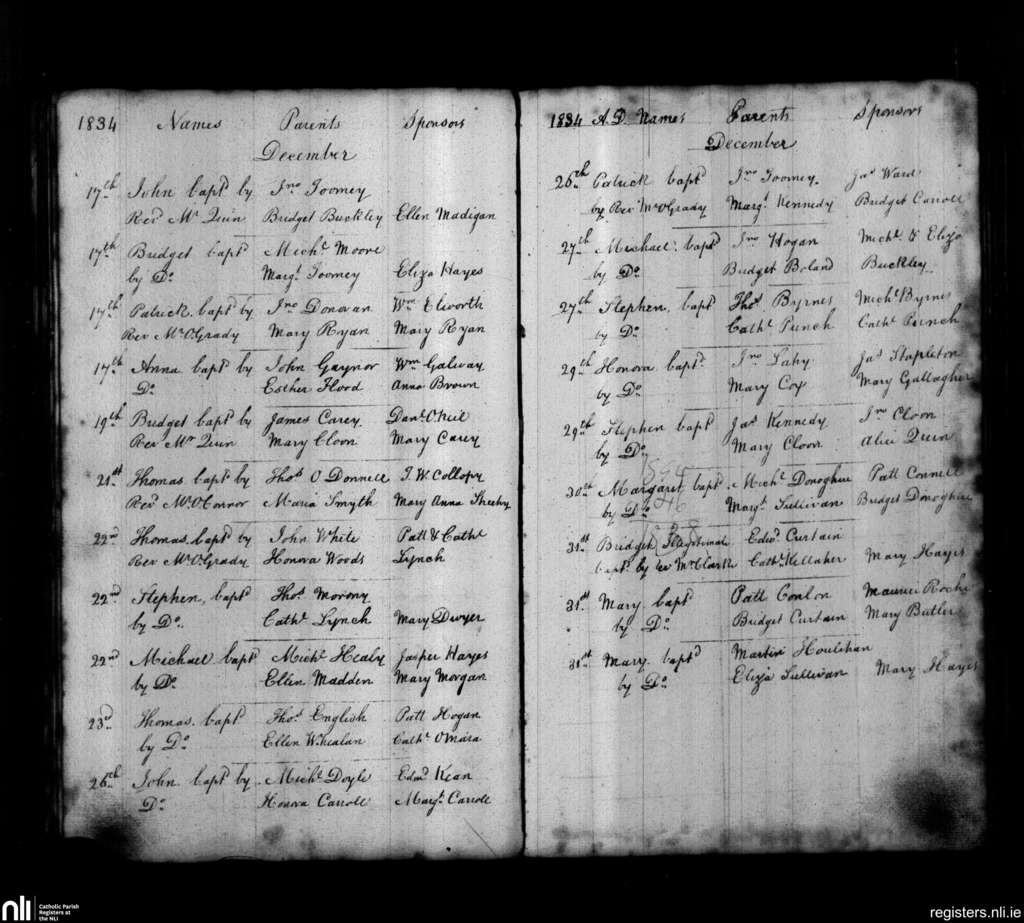 1834 Names Parents Sponsors
December
17th John bapt by Jno Toomey
Revd Mr Quin Bridget Buckley Ellen Madigan
17th Bridget bapt Michl Moore
by Do. Margt Toomey Eliza Hayes
17th Patrick bapt by Jno Donovan Wm Elworth
Revr Mr O'Grady Mary Ryan Mary Ryan
17th Anna bapt by John Gaynor Wm Galway
Do. Esther Hood Anna Brown
19th Bridget bapd by James Carey Danl O'Neil
Revr Mr Quin Mary Cloon Mary Carey
21st Thomas bapt by Thos O Donnell T. W. Collopy
Revr Mr O'Connor Maria Smyth Mary Anna Sheehy
22nd Thomas bapt by John White Patt & Cathe
Revr Mr O'Grady Honora Woods Lynch
22nd Stephen, bapt Thos Morony
by Do. Cathe Lynch Mary Dwyer
22nd Michael bapt Michl Healy Jasper Hayes
by Do. Ellen Madden Mary Morgan
23d Thomas bapt Thos English Patt Hogan
by Do Ellen Whealan Cathe O'Mara
26th John bapt by Michl Doyle Edmd Kean
Do. Honora Carroll Margt Carroll
1834 A.D. Names Parents Sponsors
December
26th Patrick bapt Jno Toomey. Jas Ward
by Revr Mr O'Grady Margt Kennedy Bridget Carroll
27th Michael bapt Jno Hogan Michl & Eliza
by Do Bridget Boland Buckley
27th Stephen, bapt Thos Byrnes Michl Byrnes
by Do Cathe Punch Cathe Punch
29th Honora bapt. Jno Lahy Jas Stapleton
by Do Mary Cox Mary Gallagher
29th Stephen bapt Jas Kennedy Jno Cloon
by Do Mary Cloon Alice Quin
30th Margaret bapt Michl Donoghue Patt Connell
by Do Margt Sullivan Bridget Donoghue
31st Bridget Illegitimate Edmd Curtain
bapt by Mr Clarke Cathe Kellaher Mary Hayes
31st Mary bapt Patt Conlon Maurice Roche
by Do Bridget Curtain Mary Butler
31st Mary bapd Martin Houlihan
by Do Eliza Sullivan Mary Hayes
nli Catholic Parish
Registers at
the NLI
registers.nli.ie